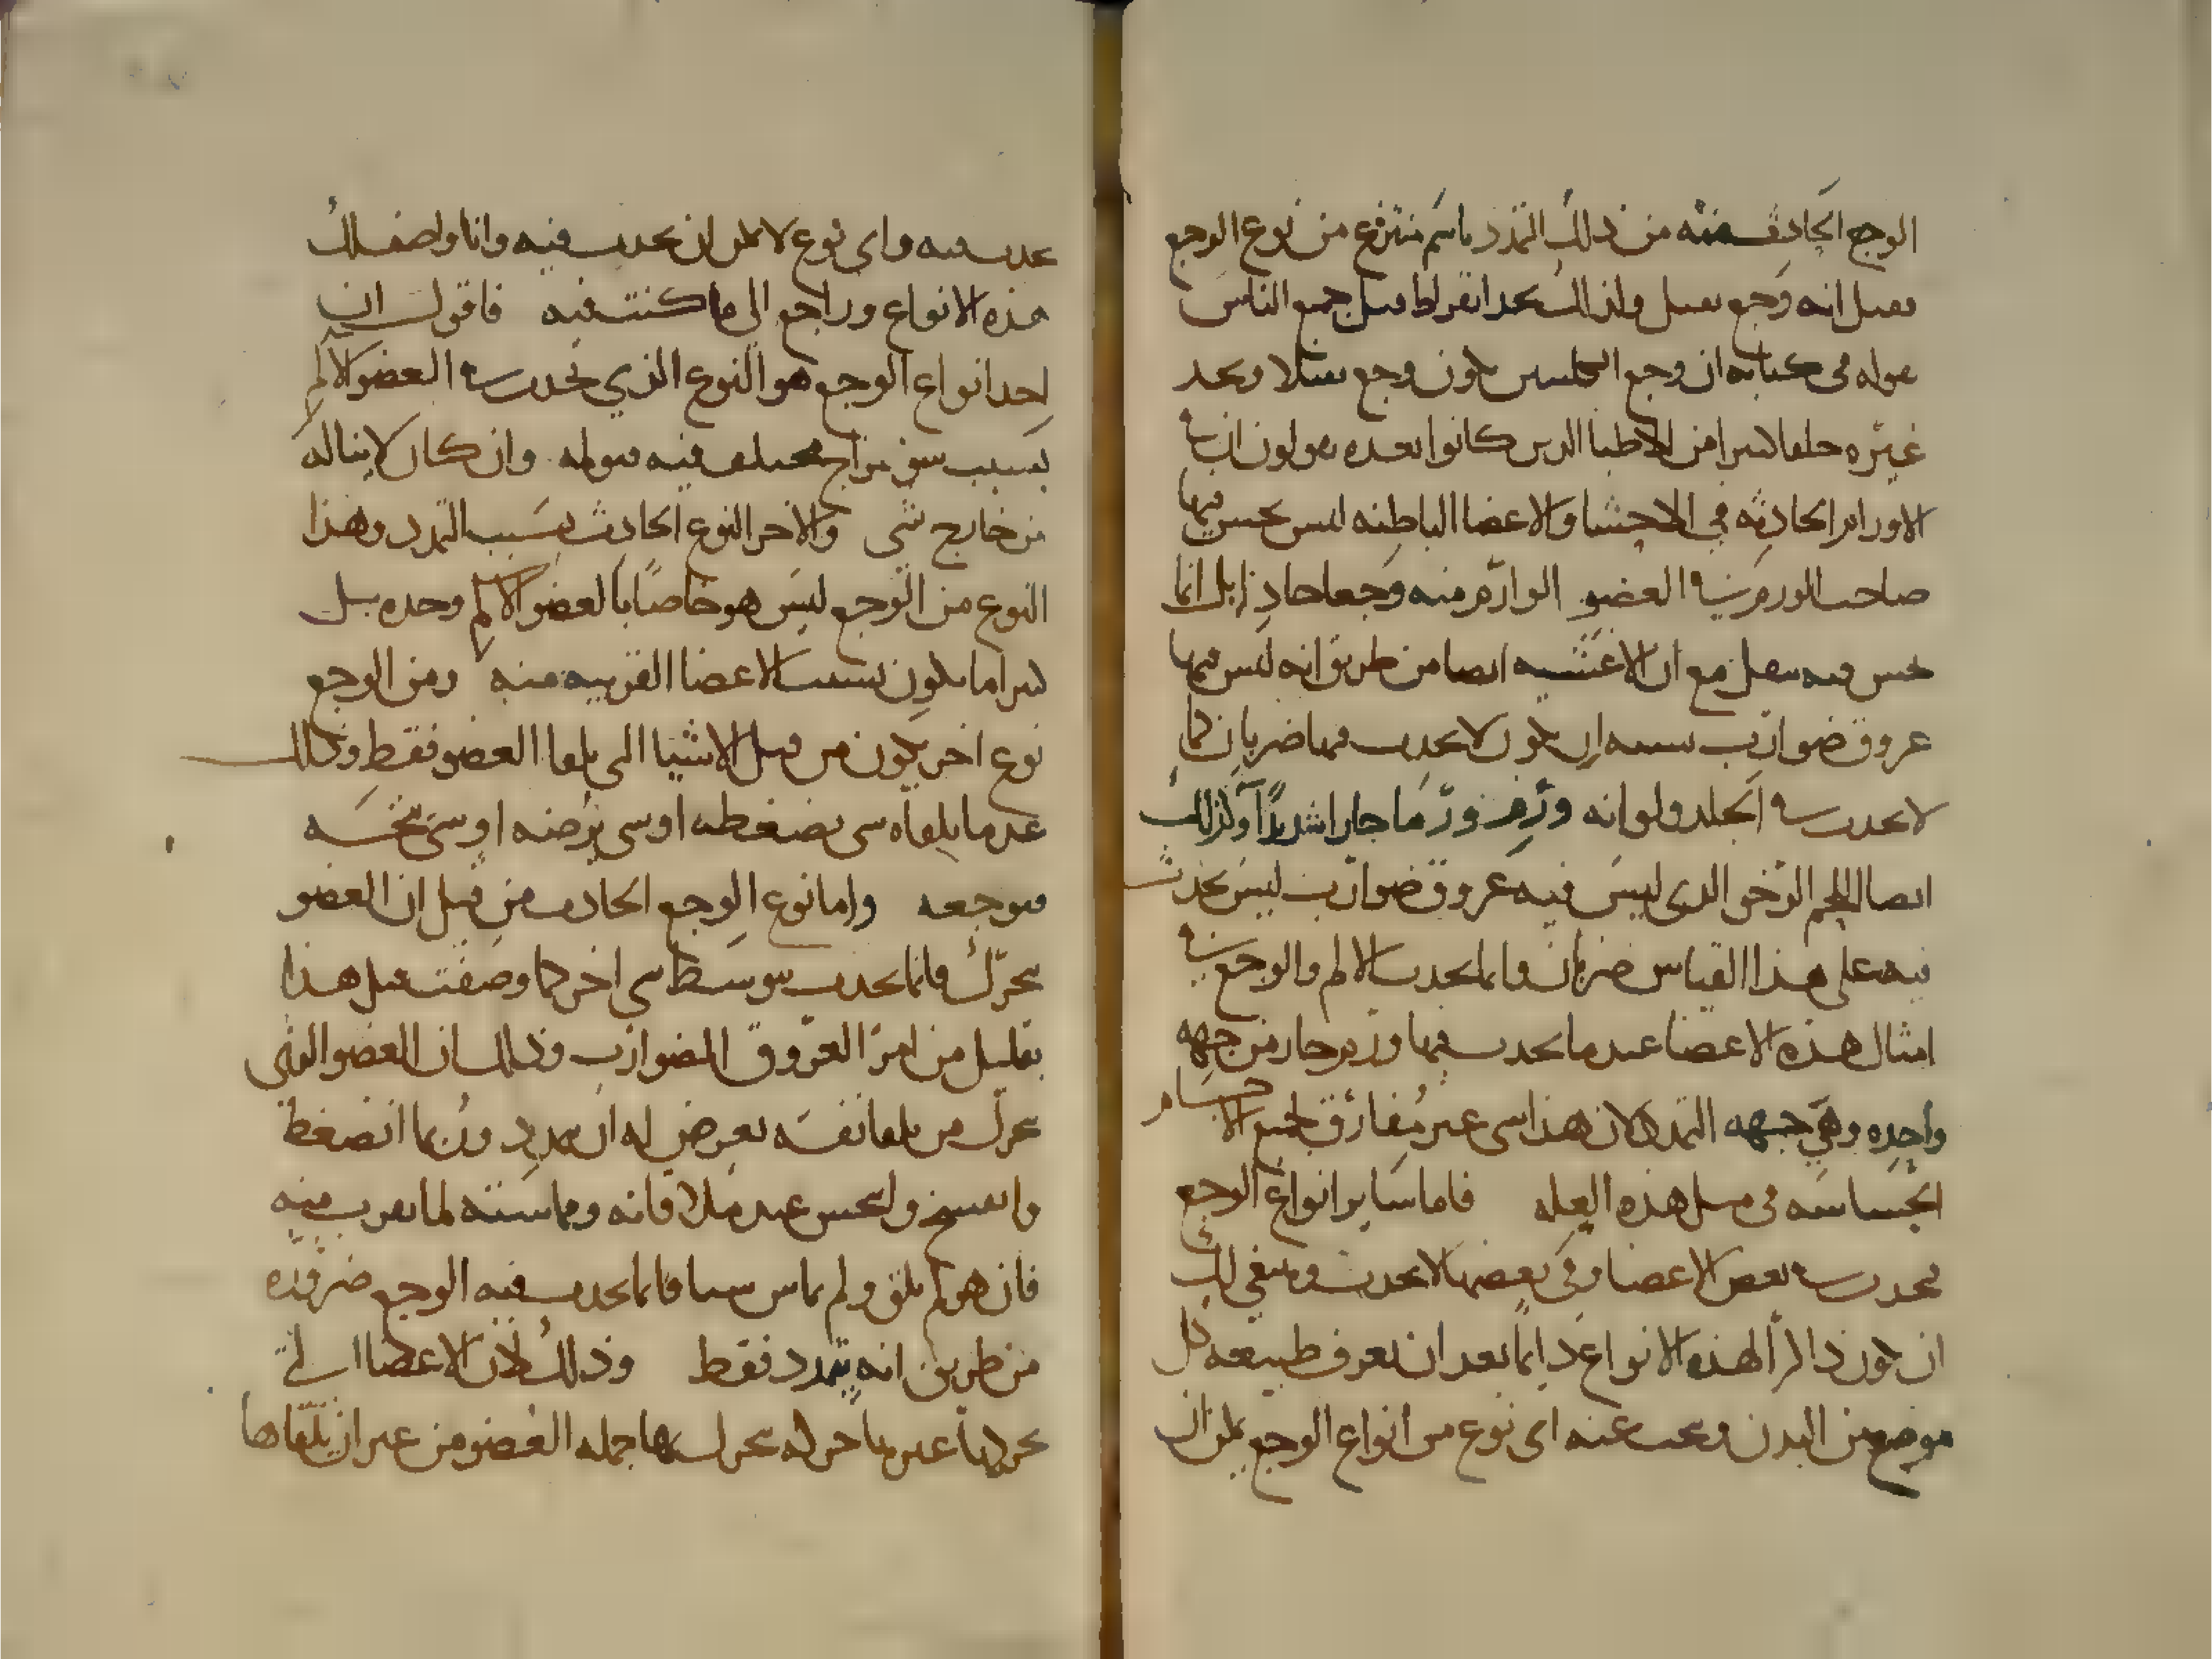 الوجع الحادث منه من ذلك التمدد باسم منتزع من نوع الوجع
فقيل انه وجع ثقيل ولذلك نجد ابقراط قبل جميع الناس
بقوله في كتابه ان وجع الكليتين يكون وجع ثقيلا ونجد
غيره خلقا كثيرا من الاطبا الذين كانوا بعده يقولون ان في
الاورام الحادثه في الاحشا والاعضا الباطنه ليس يحس فيها
صاحب الورم في العضو الوارم منه وجعا حادا بل انما
يحس فيه بثقل مع ان الاغشيه ايضا من طريق انه ليس فيها
عروق ضوارب يشبه ان يكون لا يحدث فيها ضربان كما
لا يحدث في الجلد ولو انه ورم ورما حارا شديدا وكذلك
ايضا اللحم الرخو الذي ليس فيه عروق ضوارب ليس يحدث
فيه على هذا القياس ضربان وانما يحدث الالم والوجع في
امثال هذه الاعضا عند ما يحدث فيها ورم حار من جهه
واحده وهي جهه التمدد لان هذا شي غير مفارق لجميع الاجسام
الحساسه في مثل هذه العله فاما ساير انواع الوجع
فيحدث في بعض الاعضا وفي بعضها لا يحدث وينبغي لك
ان تكون ذاكرا لهذه الانواع دايما بعد ان تعرف طبيعه كل
موضع من البدن وتحت عنه اي نوع من انواع الوجع يمكن ان
يحدث فيه واي نوع لا يمكن ان يحدث فيه وانا واصف لك
هذه الانواع وراجع الى ما كنت فيه فاقول ان
احد انواع الوجع هو النوع الذي يحدث في العضو الالم
بسبب سو مزاج مختلف فيه فيولمه وان كان لا يناله
من خارج شي والاخر النوع الحادث بسبب التمدد وهذا
النوع من الوجع ليس هو خاصا بالعضو الالم وحده بل
كثيرا ما يكون بسبب الاعضا القريبه منه ومن الوجع
نوع اخر يكون من قبل الاشيا التي يلقاها العضو فقط وذلك
عند ما يلقاه شي يضغطه او شي يرضه او شي ينخسه
فيوجعه واما نوع الوجع الحادث من قبل ان العضو
يتحرك فانما يحدث بتوسط شي اخر كما وصفت قبل هذا
بقليل من امر العروق الضوارب وذلك ان العضو الذي
يحرك من تلقا نفسه يعرض له ان يتمدد وربما انضغط
وانفسخ وانخس عند ملاقاته ومماسته لما يقرب منه
فان هو لم يلق ولم يماس شيا فانما يحدث فيه الوجع ضروره
من طريق انه يتمدد فقط وذلك لان الاعضا التي
يحركها غيرها حركه يتحرك بها جمله العضو من غير ان يلقاها